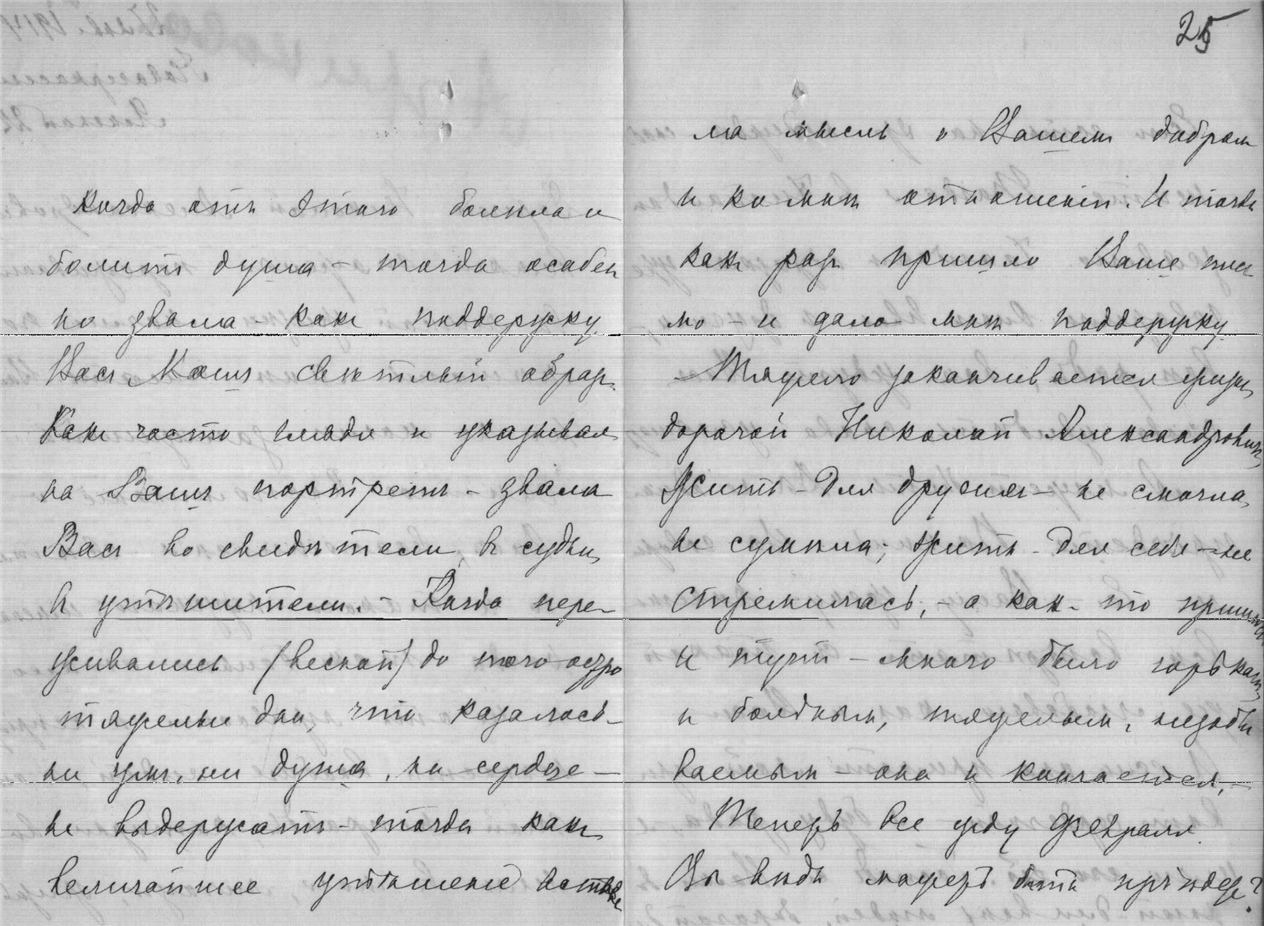 когда отъ этого болѣла и
болитъ душа – тогда особен
но звала – какъ поддержку
Васъ Вашъ свѣтлый образъ.
Какъ часто глядя и указывая
на Вашъ портретъ – звала
Васъ во свидѣтели, в судьи,
в утѣшители. – Когда пере-
живались (весной) до того остро
тяжелые дни, что казалось –
ни умъ, ни душа, ни сердце –
не выдержатъ – тогда какъ
величайшее утѣшеніе
25
ла мысль о Вашемъ добромъ
и ко мнѣ отношеніи. И тогда
какъ разъ пришло Ваше пись
мо – и дало мнѣ поддержку.
– Тяжело заканчивается жизнь,
дорогой Николай Александровичъ,
Жить – для другихъ – не смогла,
не сумѣла; жить – для себя – не
стремилась, – а какъ-то пришлось
и тутъ – много было горькаго,
и больнымъ, тяжелымъ, незабы
ваемымъ – она и кончается. –
Теперь все жду Февраля.
Вы вѣдь можетъ быть пріѣдете?